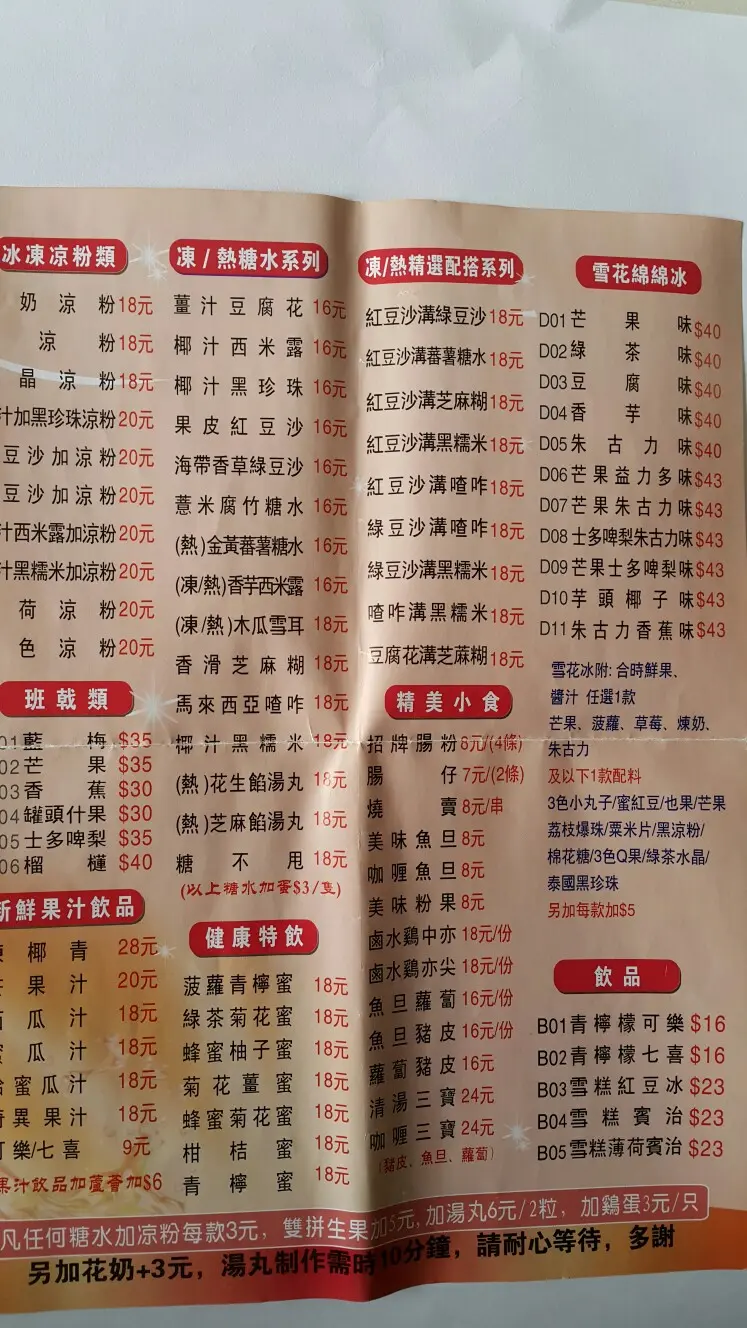 冰凍凉粉類
奶凉粉18元
凉粉18元
晶凉粉18元
汁加黑珍珠凉粉20元
豆沙加凉粉20元
豆沙加凉粉20元
汁西米露加凉粉20元
汁黑糯米加凉粉20元
荷凉粉20元
色凉粉20元
班戟類
01藍莓 $35
02芒果 $35
03香蕉 $30
04罐頭什果 $30
05士多啤梨 $35
06榴槤 $40
新鮮果汁飲品
椰青 28元
果汁 20元
瓜汁 18元
瓜汁 18元
蜜瓜汁 18元
異果汁 18元
樂/七喜 9元
果汁飲品加蘆薈加$6
凍/熱糖水系列
薑汁豆腐花 16元
椰汁西米露 16元
椰汁黑珍珠 16元
果皮紅豆沙 16元
海帶香草綠豆沙 16元
薏米腐竹糖水 16元
(熱)金黃蕃薯糖水 16元
(凍/熱)香芋西米露 16元
(凍/熱)木瓜雪耳 18元
香滑芝麻糊 18元
馬來西亞喳咋 18元
椰汁黑糯米 18元
(熱)花生餡湯丸 18元
(熱)芝麻餡湯丸 18元
糖不甩 18元
(以上糖水加蛋$3/隻)
健康特飲
菠蘿青檸蜜 18元
綠茶菊花蜜 18元
蜂蜜柚子蜜 18元
菊花薑蜜 18元
蜂蜜菊花蜜 18元
柑桔蜜 18元
青檸蜜 18元
凍/熱精選配搭系列
紅豆沙溝綠豆沙18元
紅豆沙溝蕃薯糖水18元
紅豆沙溝芝麻糊18元
紅豆沙溝黑糯米18元
紅豆沙溝喳咋18元
綠豆沙溝喳咋18元
綠豆沙溝黑糯米18元
喳咋溝黑糯米18元
豆腐花溝芝麻糊18元
精美小食
招牌腸粉6元/(4條)
腸仔7元/(2條)
燒賣8元/串
美味魚旦8元
咖喱魚旦8元
美味粉果8元
鹵水鷄中亦18元/份
鹵水鷄亦尖18元/份
魚旦蘿蔔16元/份
魚旦豬皮16元/份
蘿蔔豬皮16元
清湯三寶24元
咖喱三寶24元
(豬皮、魚旦、蘿蔔)
雪花綿綿冰
D01芒果味$40
D02綠茶味$40
D03豆腐味$40
D04香芋味$40
D05朱古力味$40
D06芒果益力多味$43
D07芒果朱古力味$43
D08士多啤梨朱古力味$43
D09芒果士多啤梨味$43
D10芋頭椰子味$43
D11朱古力香蕉味$43
雪花冰附: 合時鮮果、
醬汁 任選1款
芒果、菠蘿、草莓、煉奶、
朱古力
及以下1款配料
3色小丸子/蜜紅豆/也果/芒果
荔枝爆珠/粟米片/黑凉粉/
棉花糖/3色Q果/綠茶水晶/
泰國黑珍珠
另加每款加$5
飲品
B01青檸檬可樂 $16
B02青檸檬七喜 $16
B03雪糕紅豆冰 $23
B04雪糕賓治 $23
B05雪糕薄荷賓治 $23
凡任何糖水加凉粉每款3元, 雙拼生果加5元, 加湯丸6元/2粒, 加鷄蛋3元/只
另加花奶+3元, 湯丸制作需時10分鐘, 請耐心等待, 多謝